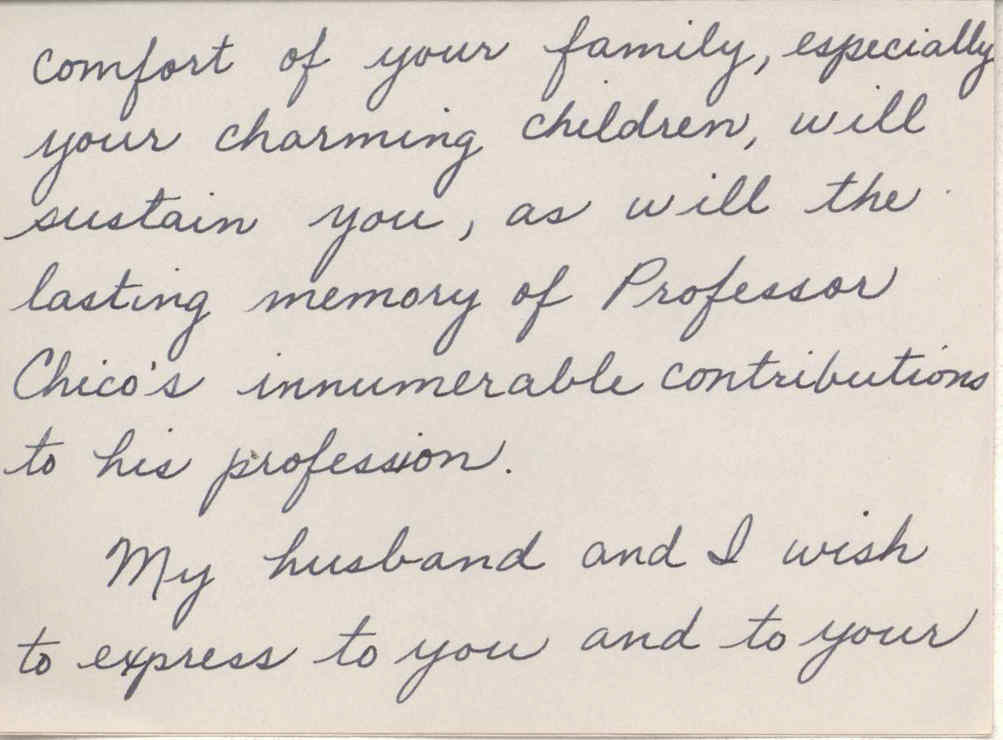 comfort of your family, especially
your charming children, will
sustain you, as will the
lasting memory of Professor
Chico's innumerable contributions
to his profession.
My husband and I wish
to express to you and to your